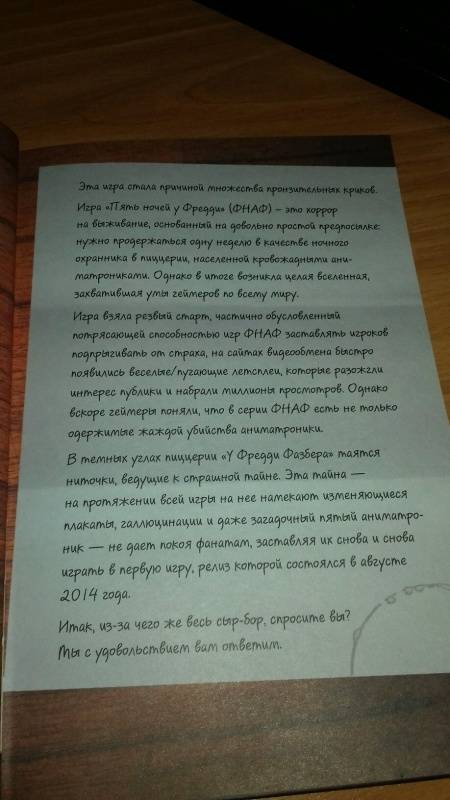 Эта игра стала причиной множества пронзительных криков.
Игра «Пять ночей у Фредди» (ФНАФ) – это хоррор
на выживание, основанный на довольно простой предпосылке:
нужно продержаться одну неделю в качестве ночного
охранника в пиццерии, населенной кровожадными ани-
матрониками. Однако в итоге возникла целая вселенная,
захватившая умы геймеров по всему миру.
Игра взяла резвый старт, частично обусловленный
потрясающей способностью игр ФНАФ заставлять игроков
подпрыгивать от страха, на сайтах видеообмена быстро
появились веселые/пугающие летсплеи, которые разожгли
интерес публики и набрали миллионы просмотров. Однако
вскоре геймеры поняли, что в серии ФНАФ есть не только
одержимые жаждой убийства аниматроники.
В темных углах пиццерии «У Фредди Фазбера» таятся
ниточки, ведущие к страшной тайне. Эта тайна —
на протяжении всей игры на нее намекают изменяющиеся
плакаты, галлюцинации и даже загадочный пятый аниматро-
ник — не дает покоя фанатам, заставляя их снова и снова
играть в первую игру, релиз которой состоялся в августе
2014 года.
Итак, из-за чего же весь сыр-бор, спросите вы?
Мы с удовольствием вам ответим.